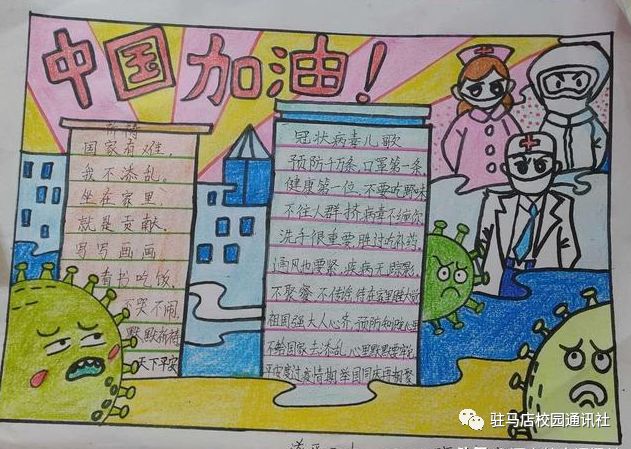 中国加油！
祈祷
国家有难，
我不添乱。
坐在家里
就是贡献。
写写画画
看书吃饭
不哭不闹
默默祈祷
天下平安
冠状病毒儿歌
预防千万条,口罩第一条
健康第一位,不要吃野味
不往人群挤,病毒不绘尔
洗手很重要,胜过吃补药
通风也要紧,疾病无踪影
不聚餐,不传谣,待在家里
祖国强大人心齐,预防
国家去添乱,心里默默
平安度过疫情期,举国同庆再
驻马店校园通讯社